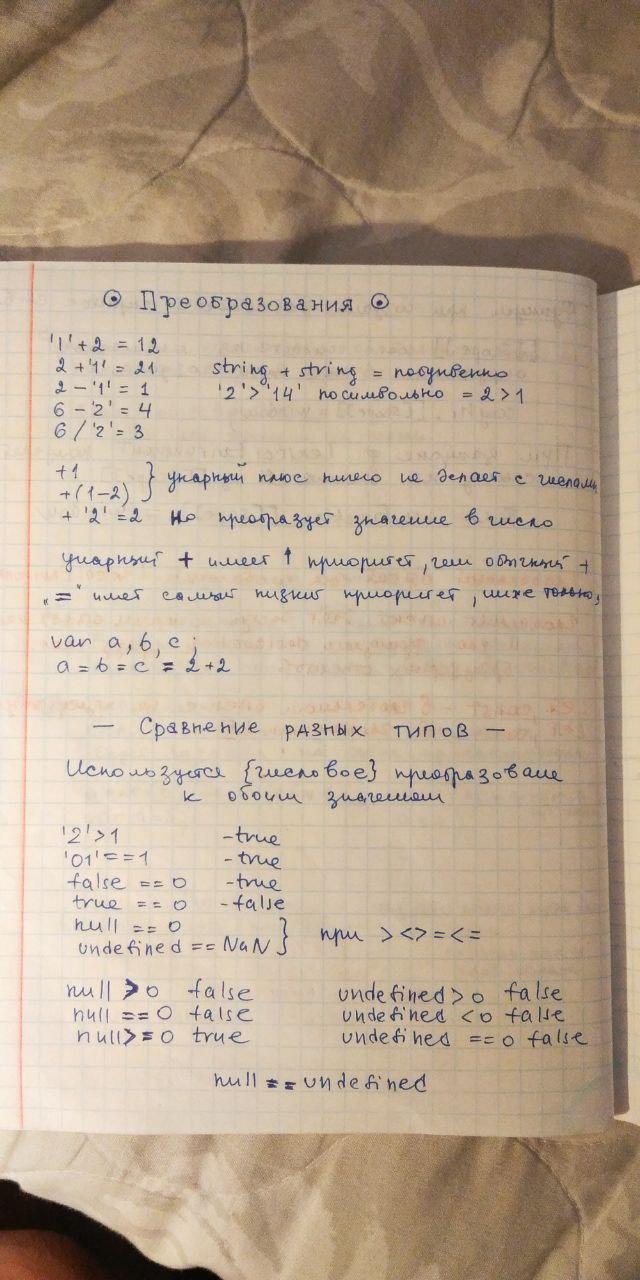 ⊙ Преобразования ⊙
'1' + 2 = 12
2 + '1' = 21 string + string = побуквенно
2 - '1' = 1 '2' > '14' посимвольно = 2 > 1
6 - '2' = 4
6 / '2' = 3
+1
+(1-2) } унарный плюс ничего не делает с числами
+ '2' = 2 но преобразует значение в число
унарный + имеет ↑ приоритет, чем обычный +
"=" имет самый низкий приоритет, ниже только,
var a, b, c;
a = b = c = 2+2
— Сравнение разных типов —
Используется {числовое} преобразование
к обоим значениям
'2' > 1 - true
'01' == 1 - true
false == 0 - true
true == 0 - false
null == 0
undefined == NaN } при > < >= <=
null > 0 false undefined > 0 false
null == 0 false undefined < 0 false
null >= 0 true undefined == 0 false
null == undefined